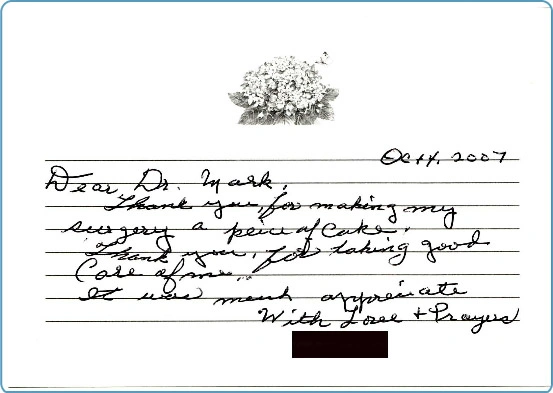 Oct 4, 2007
Dear Dr. Mark,
Thank you for making my
surgery a peice of Cake.
Thank you, for taking good
Care of me.
It was much appreciate
With Love + Prayers